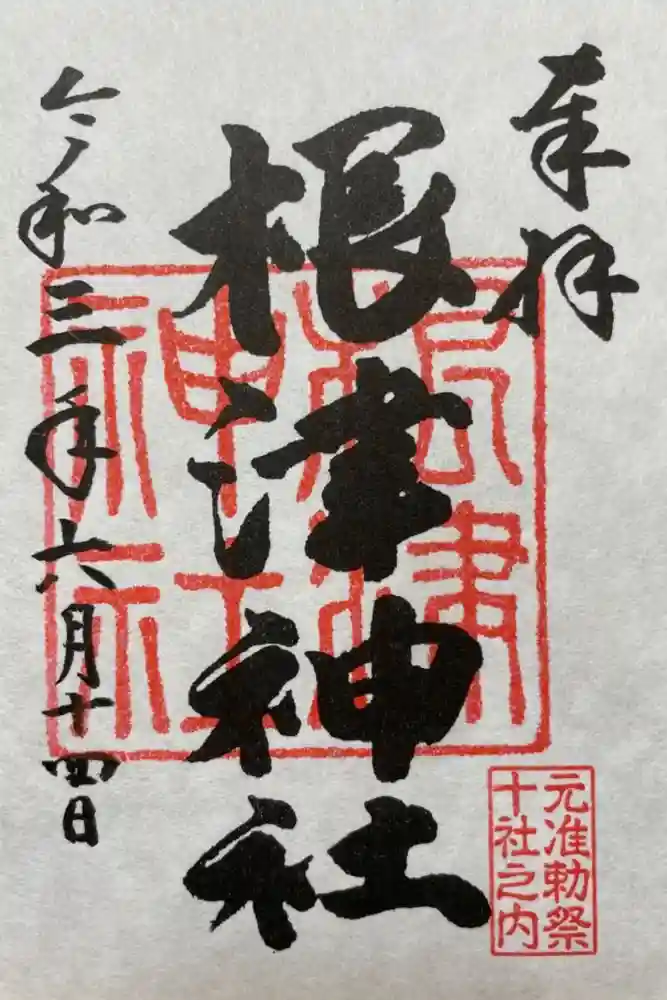 奉拝
根津神社
根津
神社
元准勅祭
十社之内
令和三年六月十四日